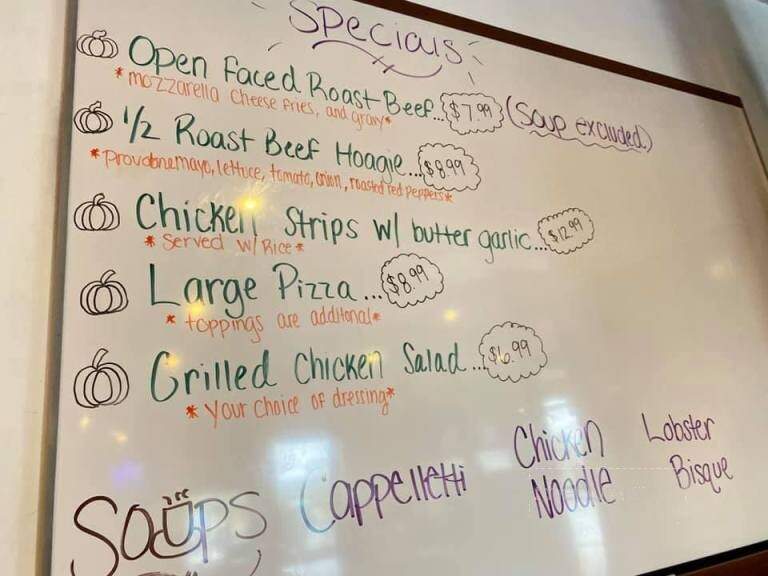 Specials
Open Faced Roast Beef...$7.99 (Soup excluded)
*mozzarella cheese fries, and gravy*
1/2 Roast Beef Hoagie...$8.99
*Provolone mayo, lettuce, tomato, onion, roasted red peppers*
Chicken Strips w/ butter garlic...$12.99
*Served w/ Rice*
Large Pizza...$8.99
*toppings are additonal*
Grilled Chicken Salad...$6.99
*Your choice of dressing*
Soups Cappelletti Chicken Noodle Lobster Bisque